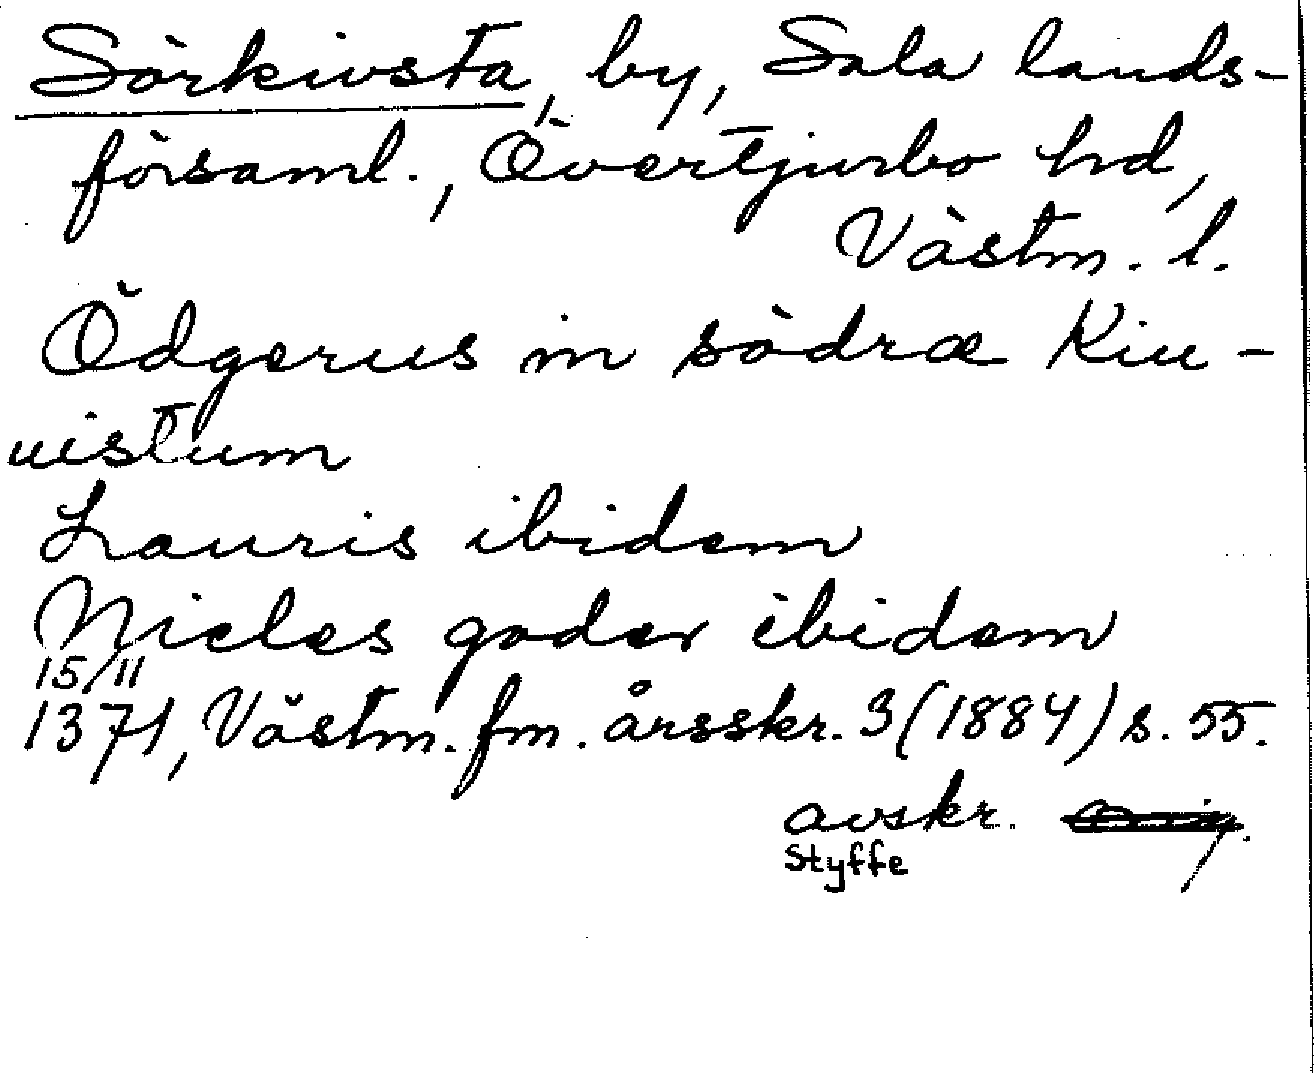 Sörkivsta, by, Sala lands-
församl., Övertjurbo hd,
Västm. l.
Ödgerus in södræ Kiu-
uistum
Lauris ibidem
Niclas goder ibidem
15/11
1371, Västm. fm. årsskr. 3 (1884) s. 55.
avskr.
Styffe